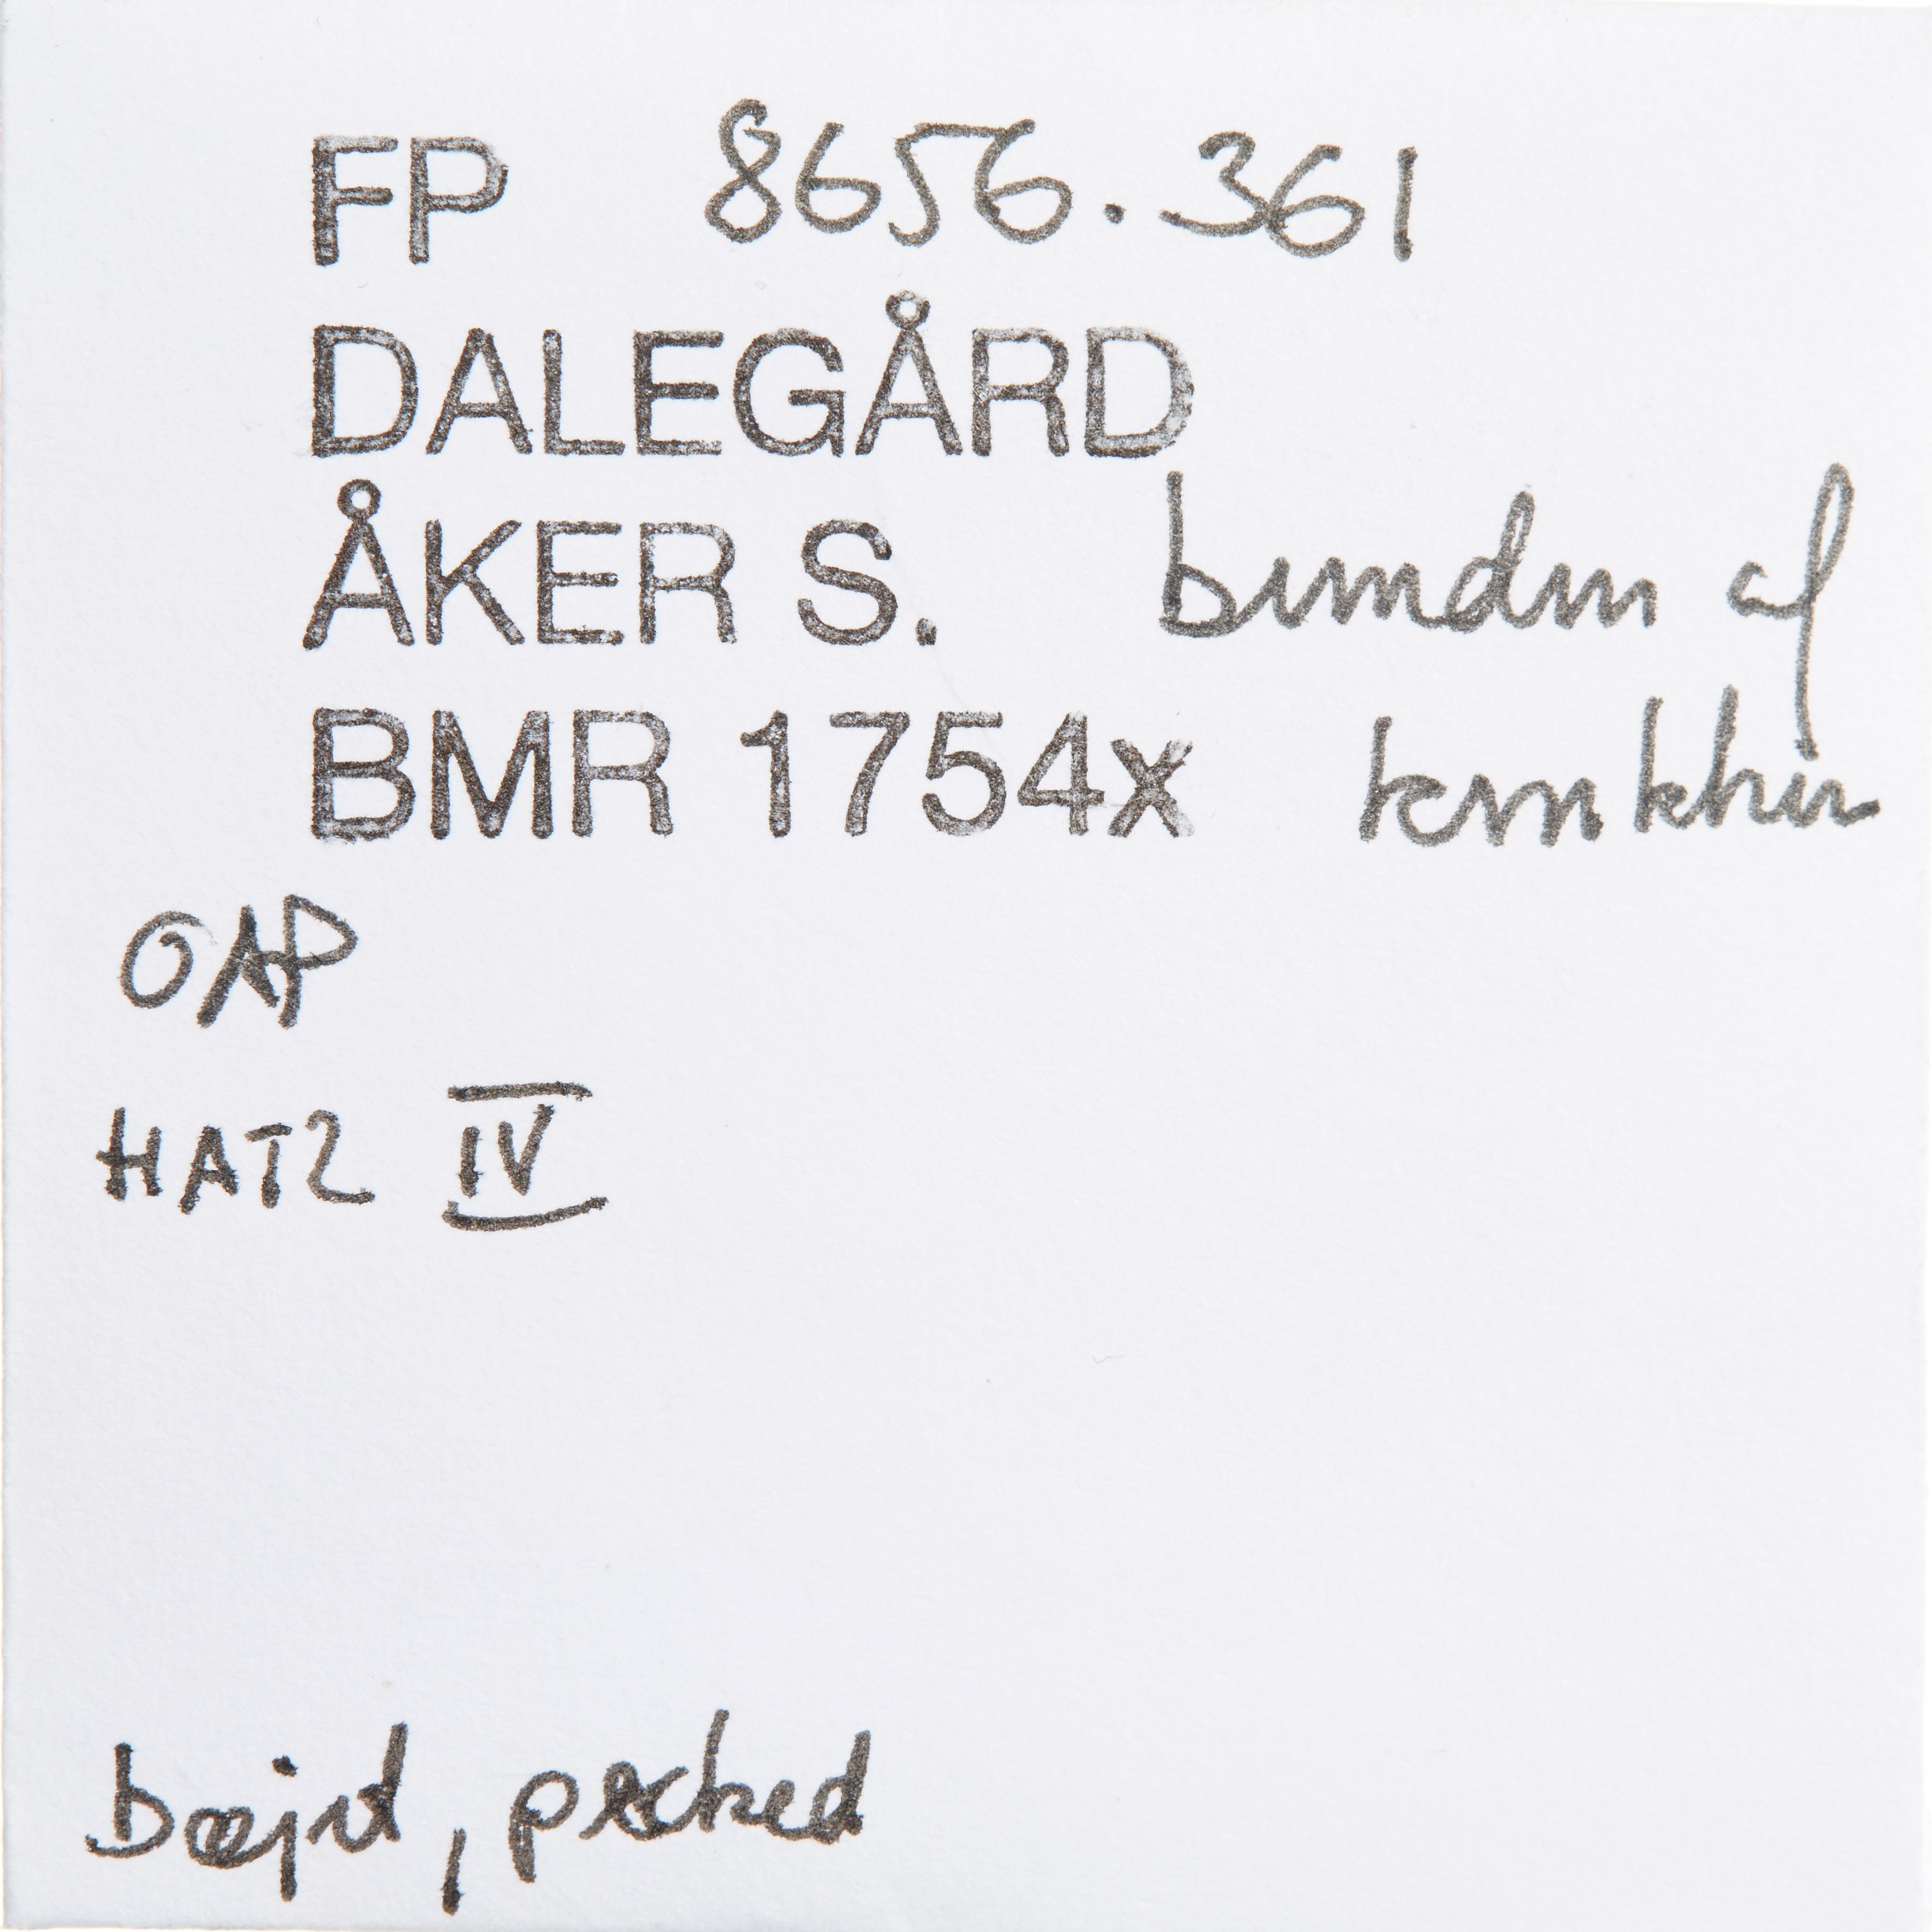 FP 8656.361
DALEGÅRD
ÅKER S. bunden af
BMR 1754x
OAP
HATZ IV
bøjet, pecked